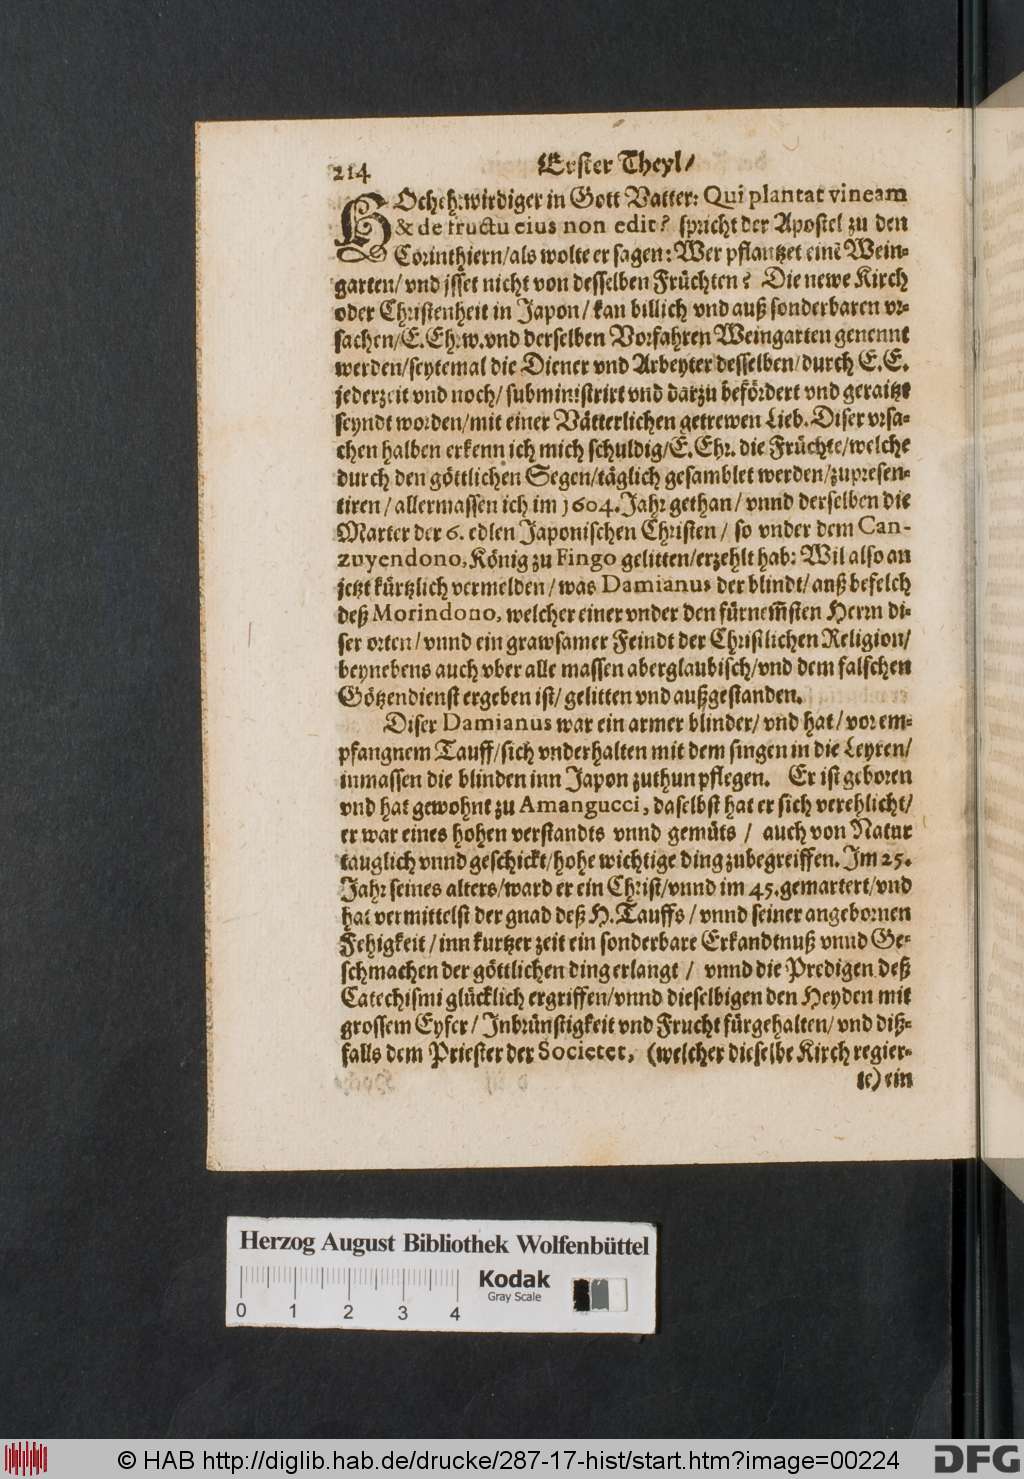 214 Erster Theyl/
HOchehrwirdiger in Gott Vatter: Qui plantat vineam
& de fructu eius non edit? spricht der Apostel zu den
Corinthiern/als wolte er sagen: Wer pflantzet einē Wein-
garten/ vnd jsset nicht von desselben Früchten? Die newe Kirch
oder Christenheit in Japon/ kan billich vnd auß sonderbaren vr-
sachen/E.Ehrw.vnd derselben Vorfahren Weingarten genennt
werden/seytemal die Diener vnd Arbeyter desselben/durch E.E.
jederzeit vnd noch/ subministrirt vnd darzu befördert vnd geraitzt
seyndt worden/mit einer Vätterlichen getrewen Lieb. Diser vrsa-
chen halben erkenn ich mich schuldig/E.Ehr. die Früchte/welche
durch den göttlichen Segen/täglich gesamblet werden/zupresen-
tiren / allermassen ich im 1604. Jahr gethan/ vnnd derselben die
Marter der 6. edlen Japonischen Christen / so vnder dem Can-
zuyendono, König zu Fingo gelitten/erzehlt hab: Wil also an
jetzt kürtzlich vermelden/ was Damianus der blindt/ auß befelch
deß Morindono, welcher einer vnder den fürnem̄sten Herrn di-
ser orten/ vnnd ein grawsamer Feindt der Christlichen Religion/
beynebens auch vber alle massen aberglaubisch/vnd dem falschen
Götzendienst ergeben ist/ gelitten vnd außgestanden.
Diser Damianus war ein armer blinder/ vnd hat/ vor em-
pfangnem Tauff/sich vnderhalten mit dem singen in die Leyren/
inmassen die blinden inn Japon zuthun pflegen. Er ist geboren
vnd hat gewohnt zu Amangucci, daselbst hat er sich verehlicht/
er war eines hohen verstandts vnnd gemüts / auch von Natur
tauglich vnnd geschickt/hohe wichtige ding zubegreiffen. Im 25.
Jahr seines alters/ward er ein Christ/vnnd im 45.gemartert/vnd
hat vermittelst der gnad deß H.Tauffs / vnnd seiner angebornen
Fehigkeit / inn kurtzer zeit ein sonderbare Erkandtnuß vnnd Ge-
schmachen der göttlichen ding erlangt / vnnd die Predigen deß
Catechismi glücklich ergriffen/vnnd dieselbigen den Heyden mit
grossem Eyfer/ Inbrünstigkeit vnd Frucht fürgehalten/ vnd diß-
falls dem Priester der Societet, (welcher dieselbe Kirch regier-
te) ein
Herzog August Bibliothek Wolfenbüttel
Kodak
Gray Scale
0 1 2 3 4
© HAB http://diglib.hab.de/drucke/287-17-hist/start.htm?image=00224
DFG